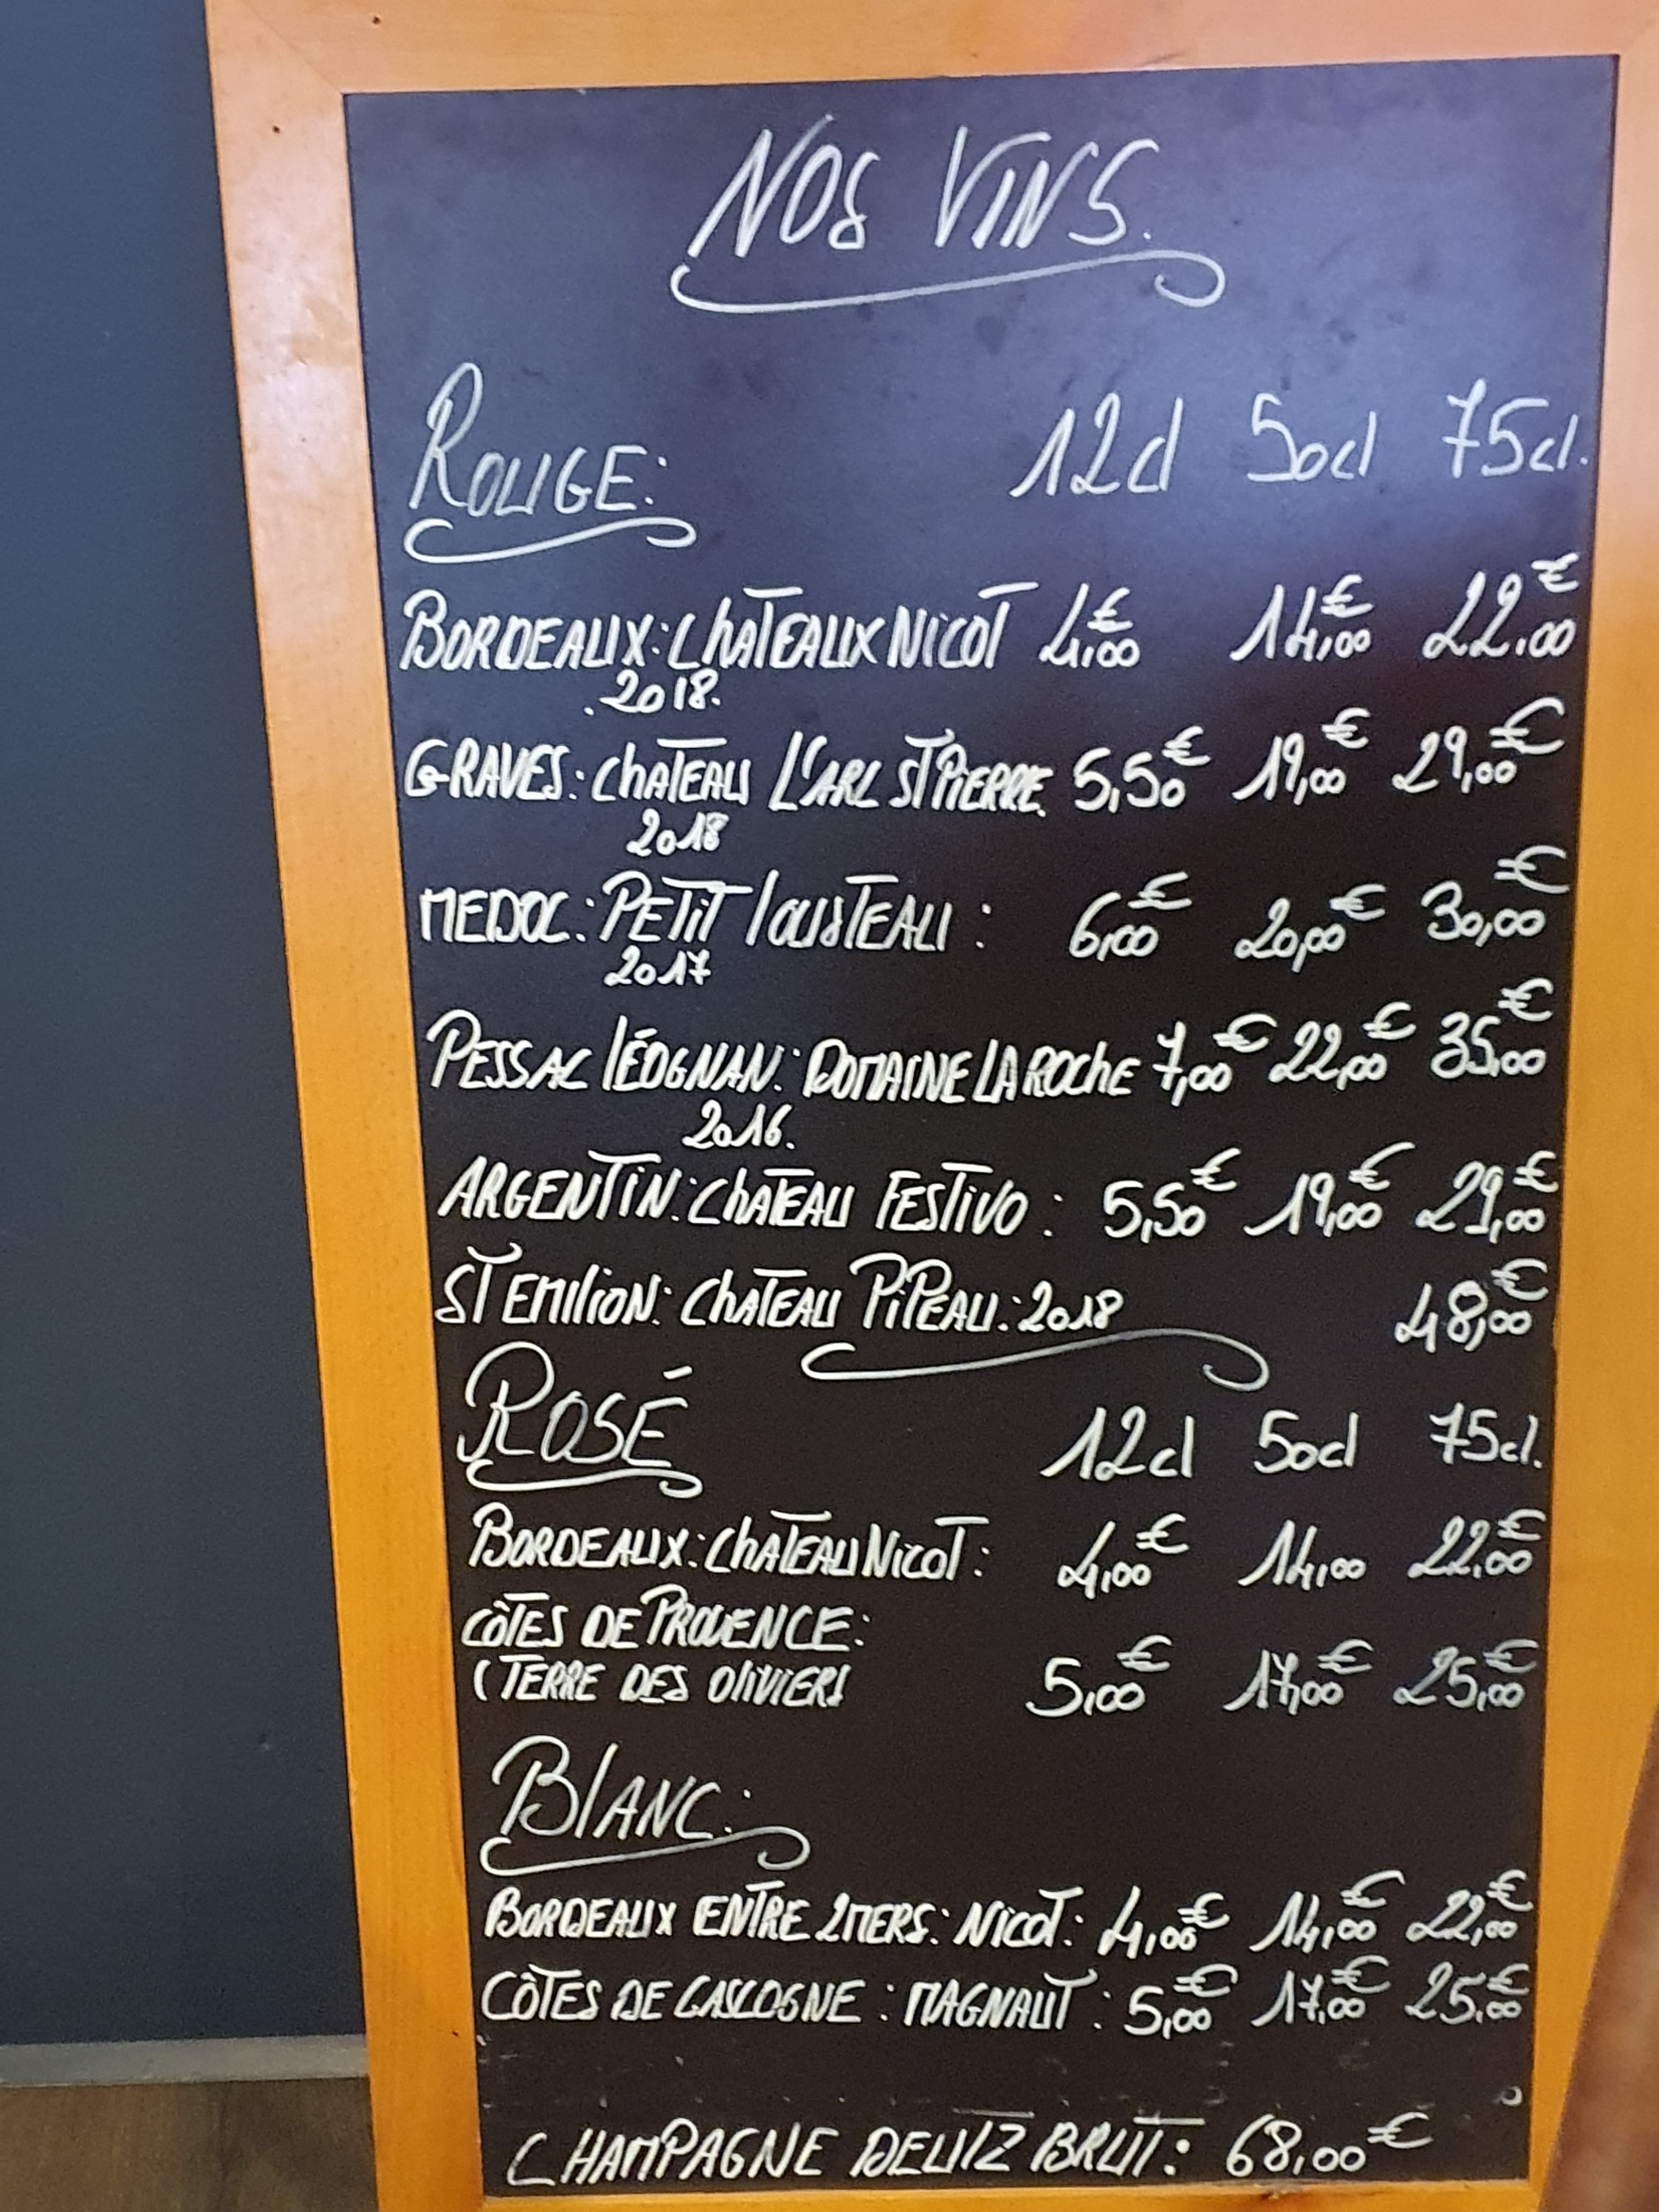 NOS VINS.
ROUGE: 12cl 50cl 75cl.
BORDEAUX: CHATEAUX NICOT 4,00€ 14,00€ 22,00€
.2018.
GRAVES: CHATEAU L'ARC ST PIERRE 5,50€ 19,00€ 29,00€
2018
MEDOC: PETIT LOUSTEAU: 6,00€ 20,00€ 30,00€
2017
PESSAC LÉOGNAN: DOMAINE LA ROCHE 7,00€ 22,00€ 35,00€
2016.
ARGENTIN: CHATEAU FESTIVO: 5,50€ 19,00€ 29,00€
ST EMILION: CHATEAU PIPEAU: 2018 48,00€
ROSÉ 12cl 50cl 75cl.
BORDEAUX: CHATEAU NICOT: 4,00€ 14,00 22,00€
CÔTES DE PROVENCE:
(TERRE DES OLIVIERS 5,00€ 17,00€ 25,00€
BLANC:
BORDEAUX ENTRE 2 MERS: NICOT: 4,00€ 14,00€ 22,00€
CÔTES DE GASCOGNE: MAGNAUT: 5,00€ 17,00€ 25,00€
CHAMPAGNE DEUTZ BRUT: 68,00€